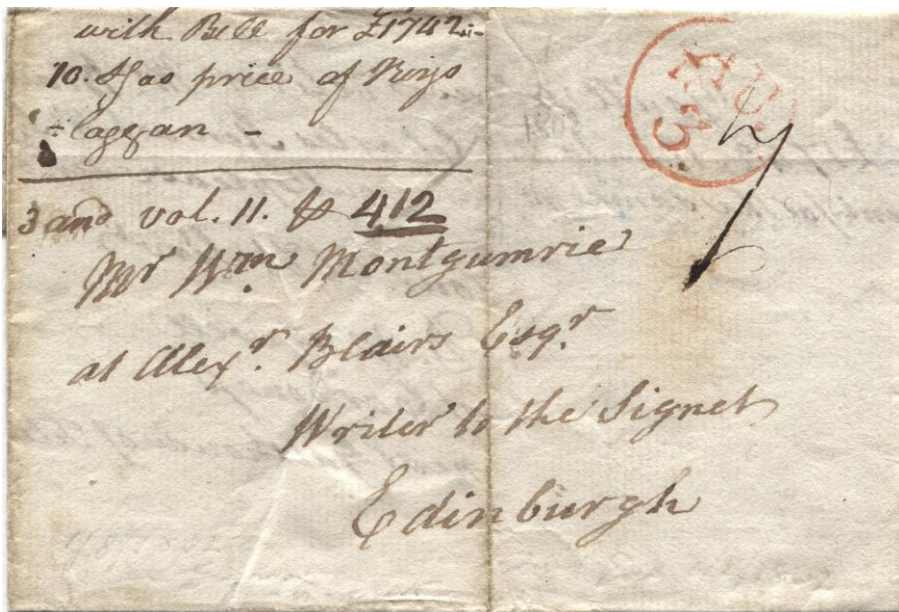 with Bill for £1742
10. as price of Roys
laggan -
3 and vol. 11. 412
Mr Wm Montgumrie
at Alexr. Blairs Esqr.
Writer to the Signet
Edinburgh
AU
3